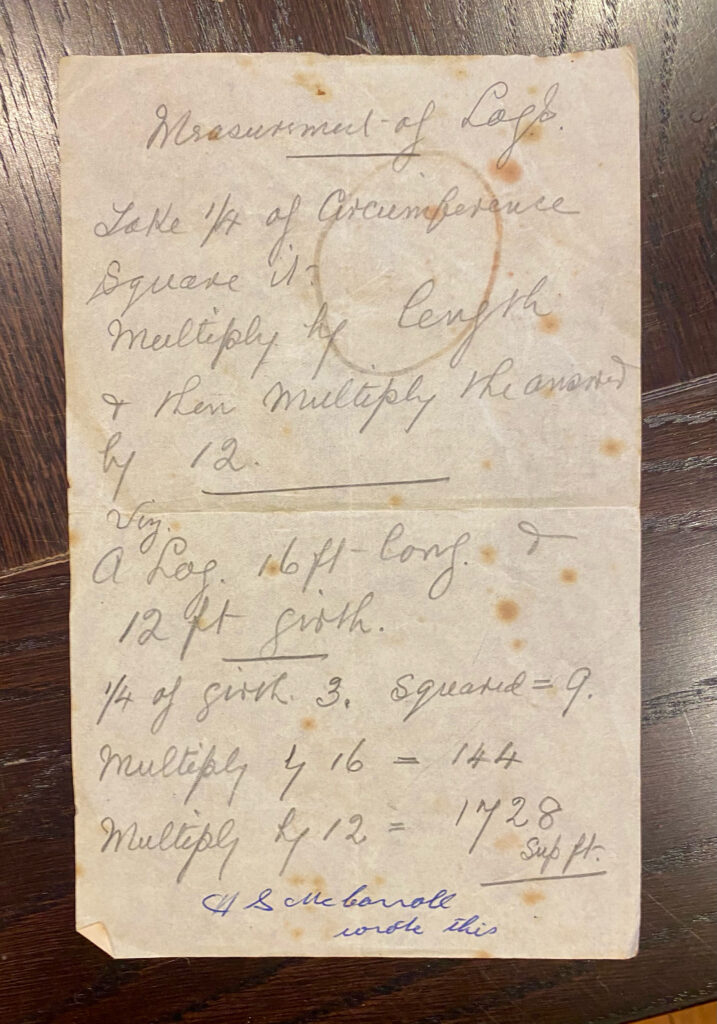 Measurement of Logs.
Take 1/4 of Circumference
Square it
Multiply by length
& then Multiply the answer
by 12.
Viz.
A Log. 16 ft long. &
12 ft girth.
1/4 of girth. 3. Squared = 9.
Multiply by 16 = 144
Multiply by 12 = 1728
Sup ft.
H S McCarroll
wrote this